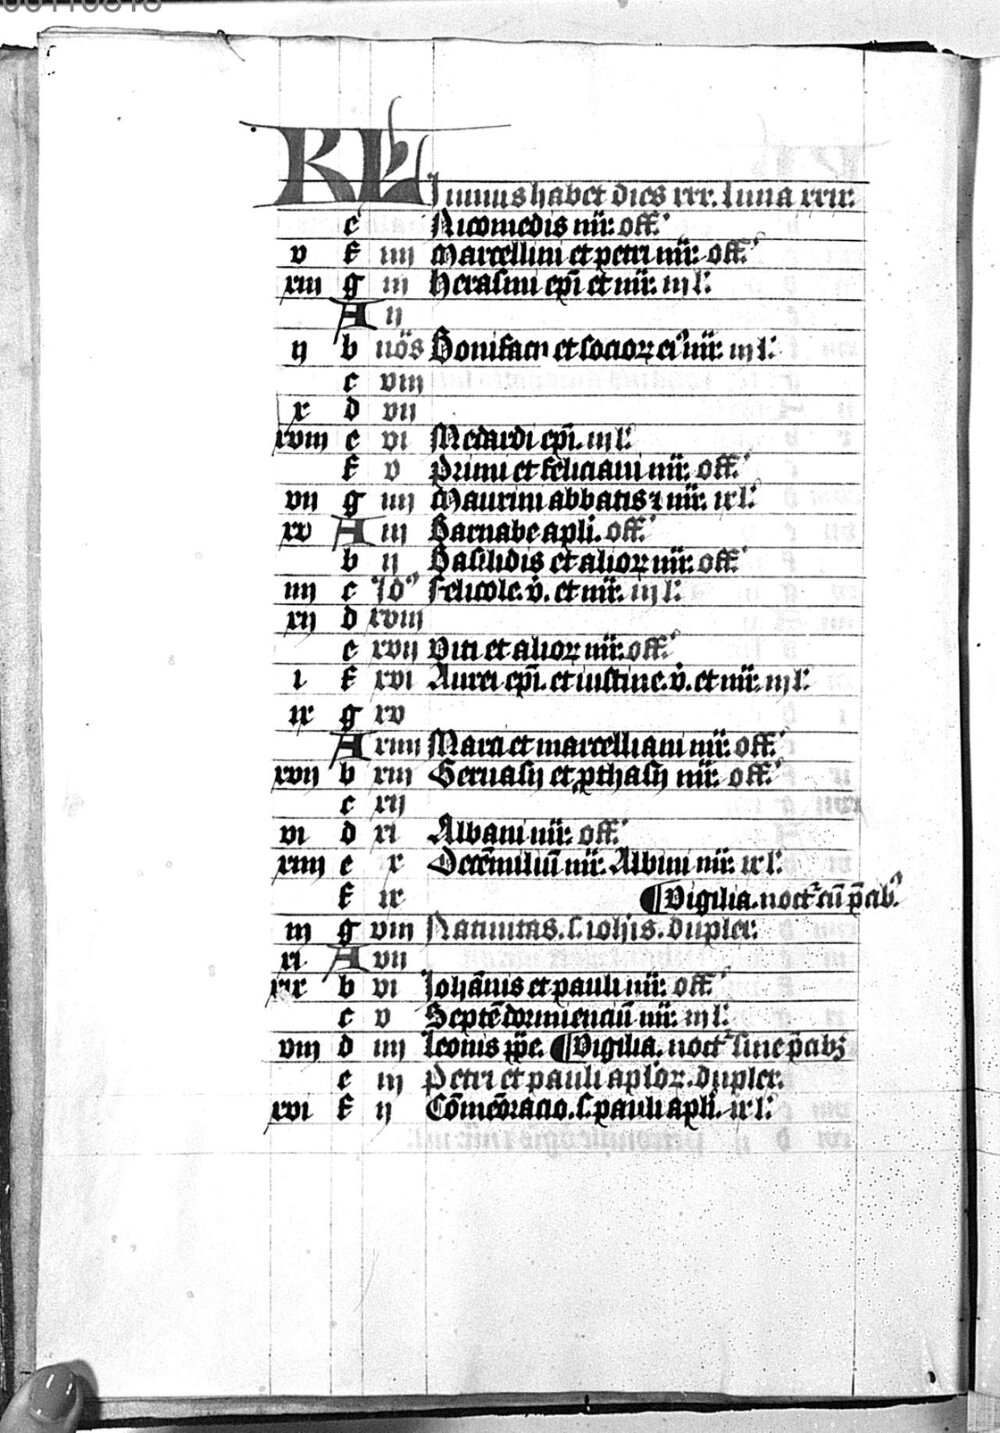 KL Junius habet dies xxx. Luna xxix.
e Nicomedis mr̄. off.
v f iiij Marcellini et petri mr̄. off.
xiij g iij Herasmi ep̄i et mr̄. iij l.
A ij
ij b nōs Bonifacii et socioꝝ ei9 mr̄. iij l.
c viij
x d vij
xviij e vi Medardi ep̄i. iij l.
f v Primi et feliciani mr̄. off.
vij g iiij Maurini abbatis ⁊ mr̄. ix l.
xv A iij Barnabe apl̄i. off.
b ij Basilidis et alioꝝ mr̄. off.
iiij c Id9 Felicole. v̄. et mr̄. iij l.
xij d xviij
e xvij Viti et alioꝝ mr̄. off.
i f xvi Aurei ep̄i. et iustine. v̄. et mr̄. iij l.
ix g xv
A xiiij Marci et marcelliani mr̄. off.
xvij b xiij Geruasij et ꝓthasij mr̄. off.
c xij
vi d xi Albani mr̄. off.
xiiij e x Decēmiliū mr̄. Albini mr̄. ix l.
f ix ¶ Vigilia. noct̄. cū p̄cib9.
iij g viij Natiuitas. s. ioh̄is. duplex.
xi A vij
xix b vi Johānis et pauli mr̄. off.
c v Septē dormienciū mr̄. iij l.
viij d iiij Leonis pp̄e. ¶ Vigilia. noct̄. sine p̄cibꝫ
e iij Petri et pauli apl̄oꝝ. duplex.
xvi f ij Cōmēoracio. s. pauli apl̄i. ix l.